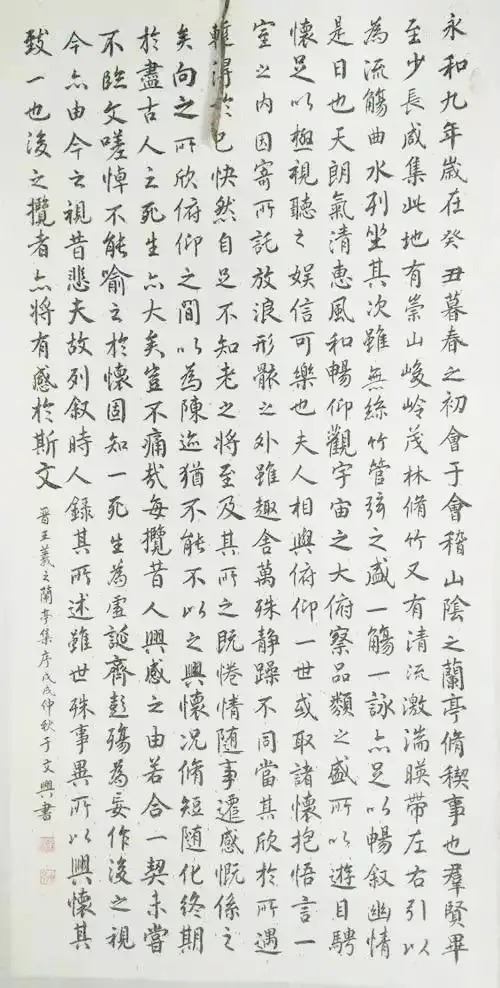 永和九年歲在癸丑暮春之初會于會稽山陰之蘭亭脩稧事也羣賢畢
至少長咸集此地有崇山峻岭茂林脩竹又有清流激湍暎帶左右引以
為流觴曲水列坐其次雖無絲竹管弦之盛一觴一詠亦足以暢叙幽情
是日也天朗氣清惠風和暢仰觀宇宙之大俯察品類之盛所以遊目騁
懷足以極視聽之娱信可樂也夫人相與俯仰一世或取諸懷抱悟言一
室之内因寄所託放浪形骸之外雖趣舍萬殊静躁不同當其欣於所遇
暫得於己快然自足不知老之將至及其所之既惓情随事遷感慨係之
矣向之所欣俯仰之間以為陳迹猶不能不以之興懷况脩短随化終期
於盡古人云死生亦大矣豈不痛哉每攬昔人興感之由若合一契未嘗
不臨文嗟悼不能喻之於懷固知一死生為虚誕齊彭殤為妄作後之視
今亦由今之視昔悲夫故列叙時人録其所述雖世殊事異所以興懷其
致一也後之攬者亦將有感於斯文
晋王羲之蘭亭集序戊戌仲秋于文興書